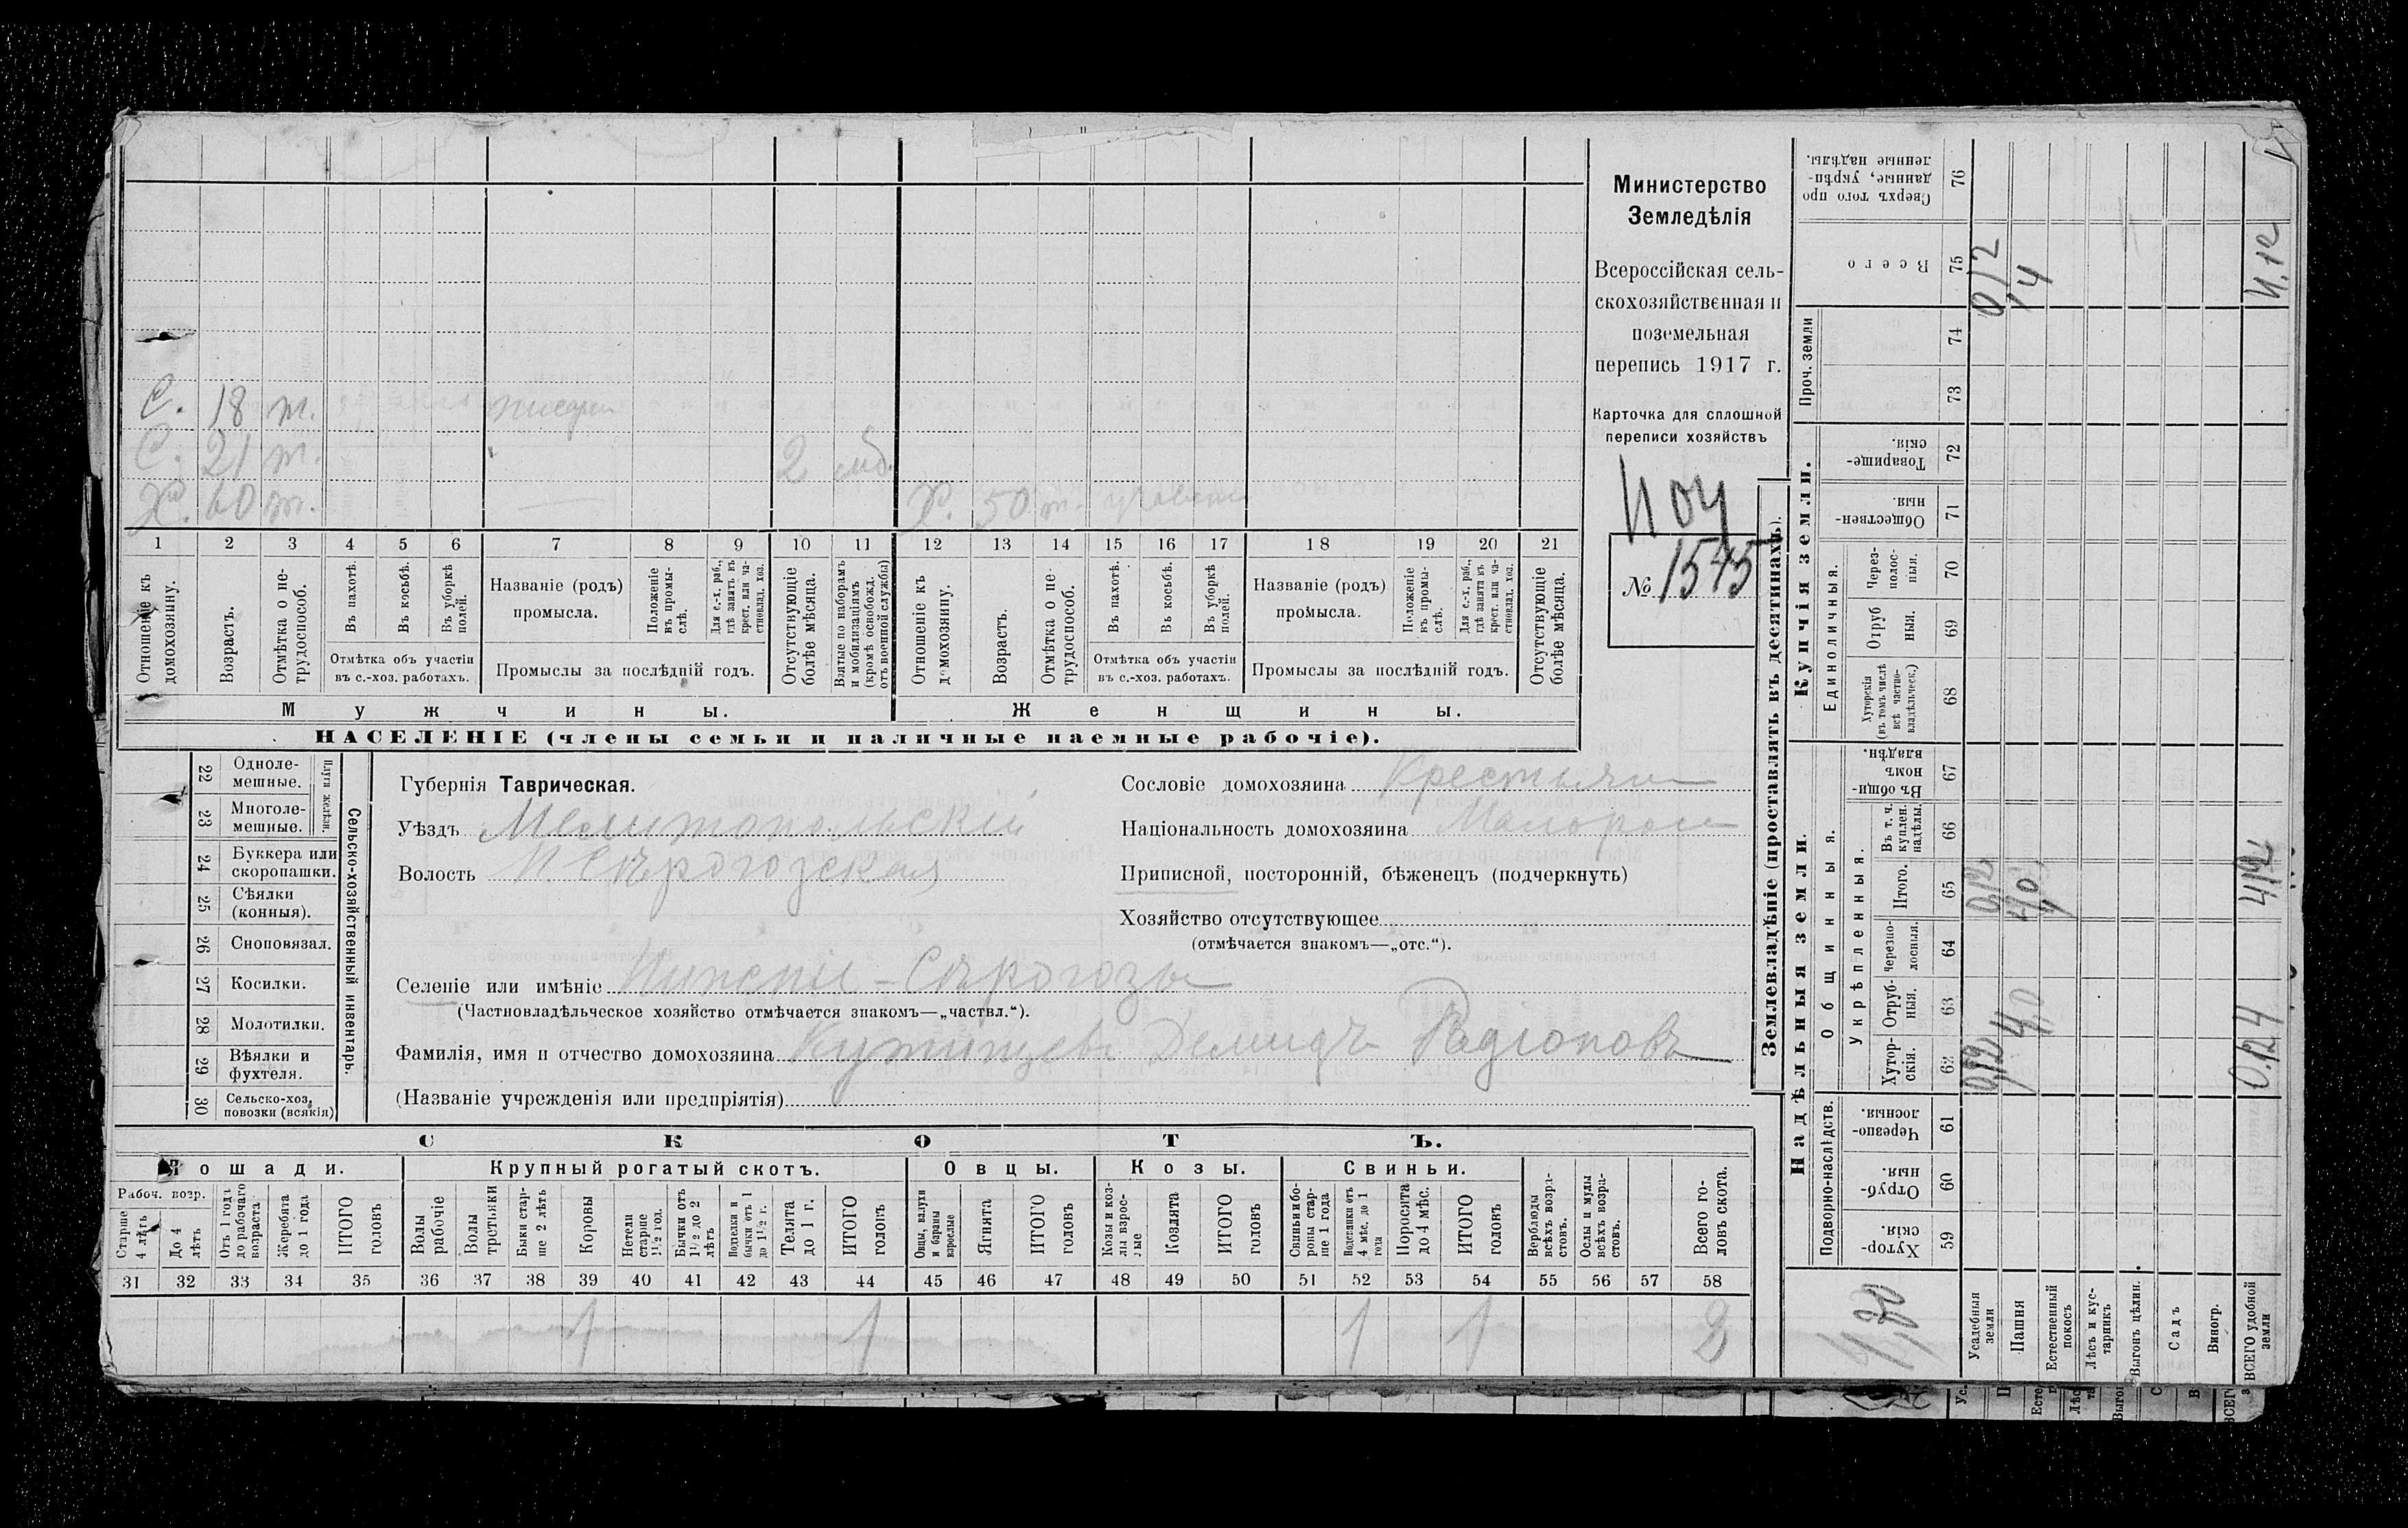 Министерство
Земледѣлія
Всероссійская сель-
скохозяйственная и
поземельная
перепись 1917 г.
Карточка для сплошной
переписи хозяйствъ
№ 1575
С. 18 т.
С. 21 т. 2
Х. 60 т. Х. 50 т.
1 2 3 4 5 6 7 8 9 10 11 12 13 14 15 16 17 18 19 20 21
Отношеніе къ домохозяину.
Возрастъ.
Отмѣтка о не-трудоспособ.
Въ пахотѣ.
Въ косьбѣ.
Въ уборкѣ полей.
Отмѣтка объ участіи
въ с.-хоз. работахъ.
Названіе (родъ)
промысла.
Положеніе въ промы-слѣ.
Для с.-х. раб., гдѣ занятъ въ крест. или ча-стновлад. хоз.
Промыслы за послѣдній годъ.
Отсутствующіе болѣе мѣсяца.
Взятые по наборамъ и мобилизаціямъ (кромѣ освобожд. отъ военной службы)
Отношеніе къ домохозяину.
Возрастъ.
Отмѣтка о не-трудоспособ.
Въ пахотѣ.
Въ косьбѣ.
Въ уборкѣ полей.
Отмѣтка объ участіи
въ с.-хоз. работахъ.
Названіе (родъ)
промысла.
Положеніе въ промы-слѣ.
Для с.-х. раб., гдѣ занята въ крест. или ча-стновлад. хоз.
Промыслы за послѣдній годъ.
Отсутствующіе болѣе мѣсяца.
Мужчины. Женщины.
НАСЕЛЕНІЕ (члены семьи и наличные наемные рабочіе).
22 Одноле-мешные.
23 Многоле-мешные.
Плуги желѣзн.
24 Буккера или скоропашки.
25 Сѣялки (конныя).
26 Сноповязал.
27 Косилки.
28 Молотилки.
29 Вѣялки и фухтеля.
30 Сельско-хоз. повозки (всякія)
Сельско-хозяйственный инвентарь.
Губернія Таврическая.
Уѣздъ Мелитопольскій
Волость Н Сѣрогозская
Селеніе или имѣніе Нижніе-Сѣрогозы
(Частновладѣльческое хозяйство отмѣчается знакомъ—„частвл.“).
Фамилія, имя и отчество домохозяина Демидъ Радіоновъ
(Названіе учрежденія или предпріятія)
Сословіе домохозяина Крестьянин
Національность домохозяина Малоросс
Приписной, посторонній, бѣженецъ (подчеркнуть)
Хозяйство отсутствующее
(отмѣчается знакомъ—„отс.“).
СКОТЪ.
Лошади. Крупный рогатый скотъ. Овцы. Козы. Свиньи.
Рабоч. возр.
Старше 4 лѣтъ
До 4 лѣтъ
Отъ 1 года до рабочаго возраста
Жеребята до 1 года
ИТОГО головъ
Волы рабочіе
Волы третьяки
Быки стар-ше 2 лѣтъ
Коровы
Нетели старше 1½ год.
Бычки отъ 1½ до 2 лѣтъ
Подтелки и бычки отъ 1 до 1½ г.
Телята до 1 г.
ИТОГО головъ
Овцы, валухи и бараны взрослые
Ягнята
ИТОГО головъ
Козы и коз-лы взрос-лые
Козлята
ИТОГО головъ
Свиньи и бо-ровы стар-ше 1 года
Подсвинки отъ 4 мѣс. до 1 года
Поросята до 4 мѣс.
ИТОГО головъ
Верблюды всѣхъ возра-стовъ.
Ослы и мулы всѣхъ возра-стовъ.
Всего го-ловъ скота.
31 32 33 34 35 36 37 38 39 40 41 42 43 44 45 46 47 48 49 50 51 52 53 54 55 56 57 58
1 1 1 1 2
Землевладѣніе (проставлять въ десятинахъ).
Надѣльныя земли. Купчія земли.
Подворно-наслѣдств.
Общинныя.
Укрѣпленныя.
Единоличныя.
Проч. земли
Хутор-скія. 59
Отруб-ныя. 60
Черезпо-лосныя. 61
Хутор-скія. 62
Отруб-ныя. 63
Черезпо-лосныя. 64
Итого. 65
Въ т. ч. куплен. надѣлы. 66
Въ общи-номъ владѣн. 67
Хуторскія (въ томъ числѣ всѣ частно-владѣльческ.) 68
Отруб ныя. 69
Через-полос-ныя. 70
Обществен-ныя. 71
Товарище-скія. 72
73
74
Всего 75
Сверхъ того про данные, укрѣп-ленные надѣлы. 76
Усадебныя земли 0,12 0,12 0,12
Пашня 4,0 4,0 4
Естественный покосъ
Лѣсъ и кус-тарникъ
Выгонъ цѣлин.
Садъ
Виногр.
ВСЕГО удобной земли 0,12 4 4,12 4,12